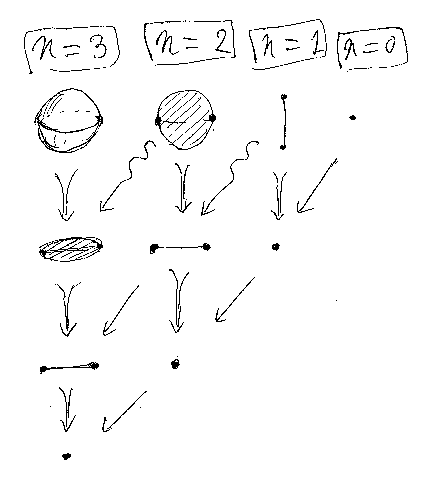 n=3 n=2 n=1 n=0